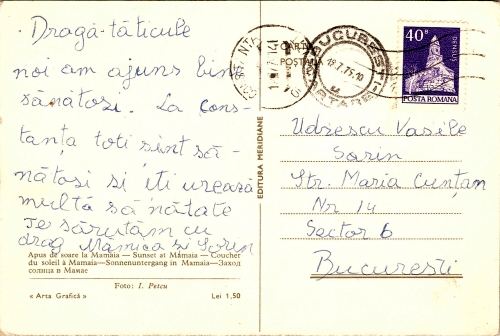 Dragă tăticule
noi am ajuns bine
sănătoși. La Cons-
tanța toți sînt să-
nătoși și îți urează
multă sănătate
Te sărutăm cu
drag Mămica și Sorin
Apus de soare la Mamaia — Sunset at Mamaia — Coucher
du soleil à Mamaia—Sonnenuntergang in Mamaia—Заход
солнца в Мамае
Foto: I. Petcu
« Arta Grafică » Lei 1,50
EDITURA MERIDIANE
CARTE
POSTALA
BUCURESTI
18.7.75.10
CARTARE
40B
DENSUS
POSTA ROMANA
Udrescu Vasile
Sorin
Str. Maria Cunțan
Nr 14
Sector 6
București